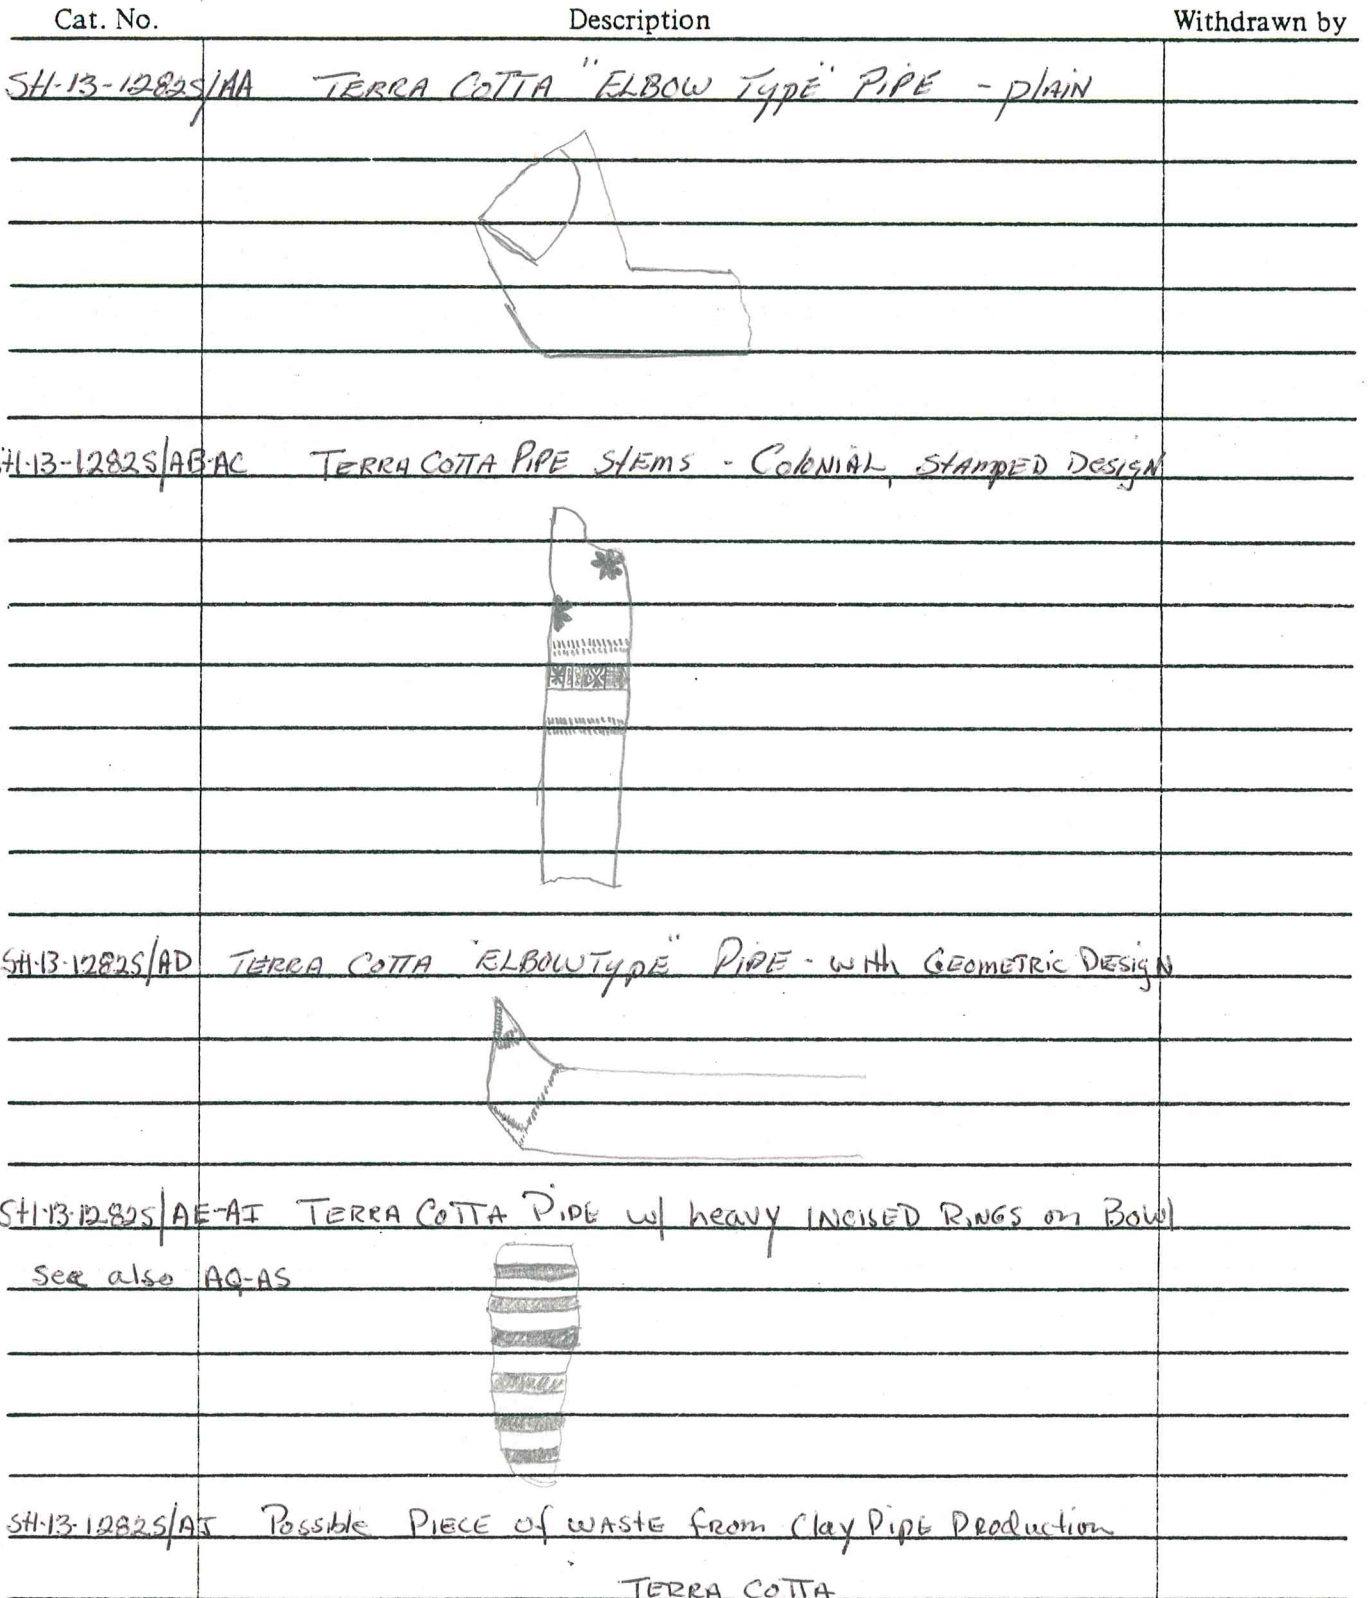 Cat. No. Description Withdrawn by
SH-13-1282S/AA TERRA COTTA "ELBOW TYPE" PIPE - PLAIN
SH-13-1282S/AB-AC TERRA COTTA PIPE STEMS - COLONIAL, STAMPED DESIGN
SH-13-1282S/AD TERRA COTTA "ELBOW TYPE" PIPE - WITH GEOMETRIC DESIGN
SH-13-1282S/AE-AI TERRA COTTA PIPE w/ heavy INCISED RINGS on BOWl
See also AQ-AS
SH-13-1282S/AJ Possible PIECE of WASTE from Clay PIPE PRODuction
TERRA COTTA